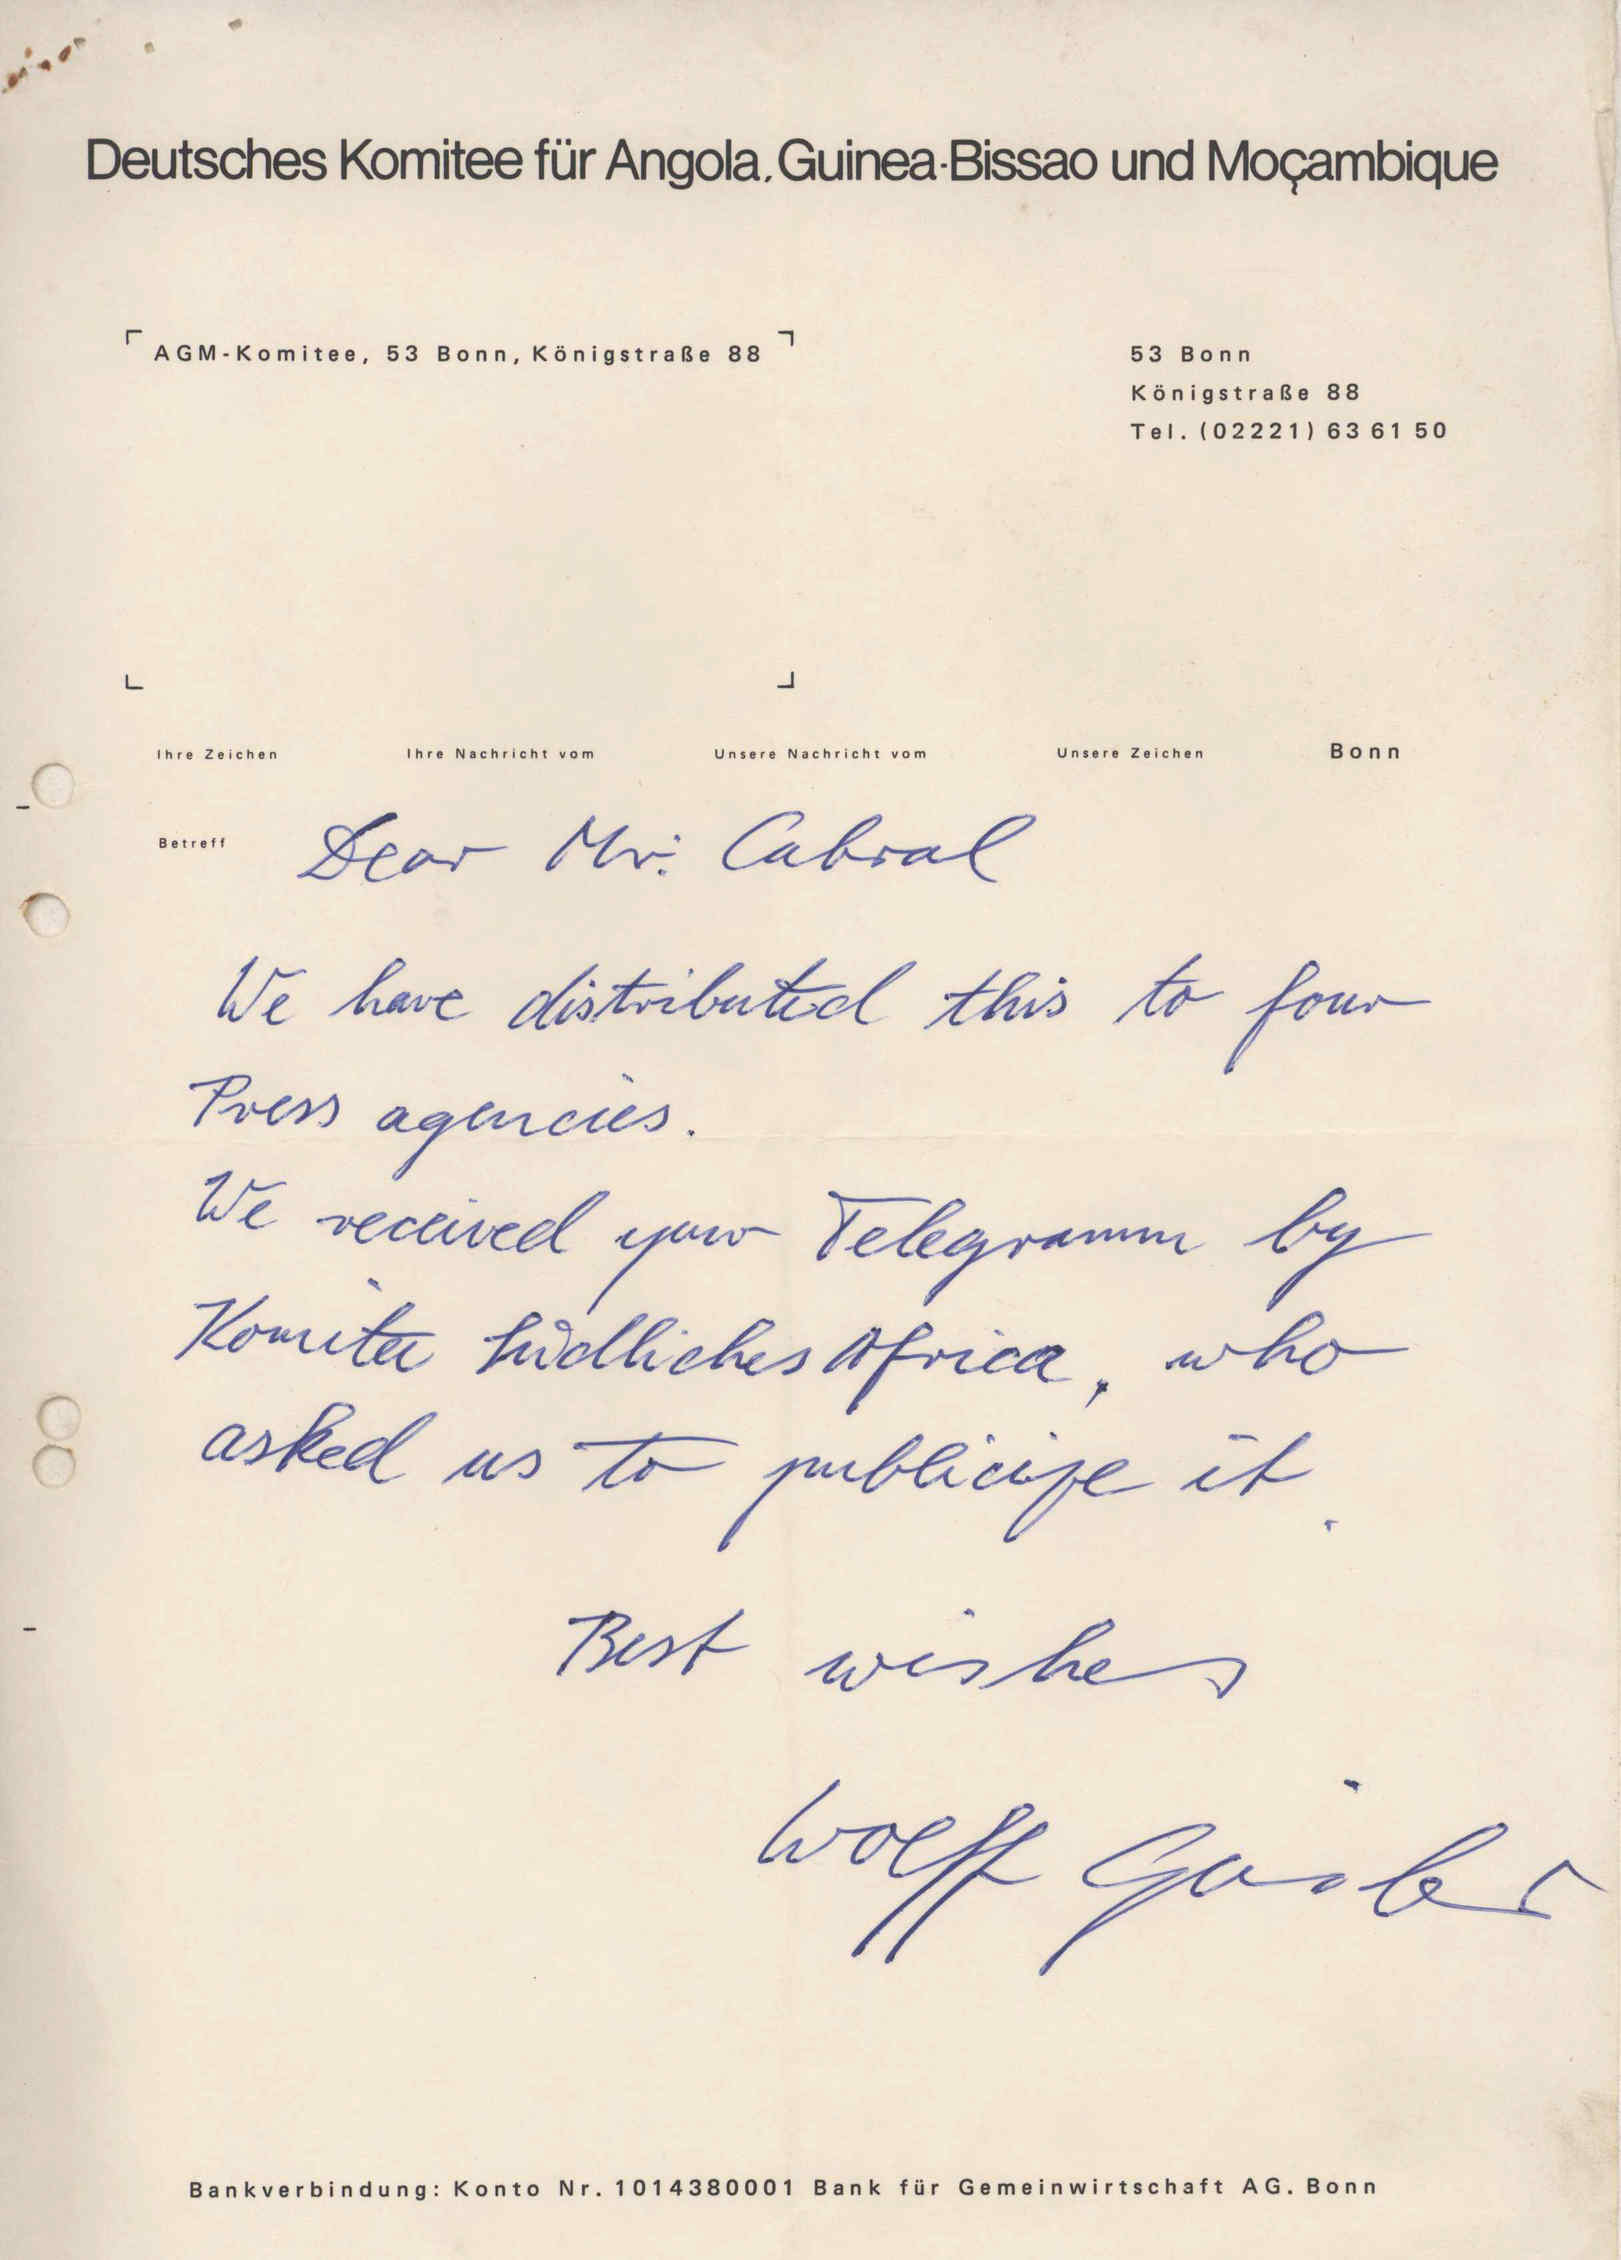 Deutsches Komitee für Angola, Guinea-Bissao und Moçambique
AGM-Komitee, 53 Bonn, Königstraße 88
53 Bonn
Königstraße 88
Tel. (02221) 63 61 50
Ihre Zeichen Ihre Nachricht vom Unsere Nachricht vom Unsere Zeichen Bonn
Betreff Dear Mr. Cabral
We have distributed this to four
Press agencies.
We received your Telegramm by
Komitee Südliches Africa, who
asked us to publicize it.
Best wishes
Wolff
Bankverbindung: Konto Nr. 1014380001 Bank für Gemeinwirtschaft AG. Bonn